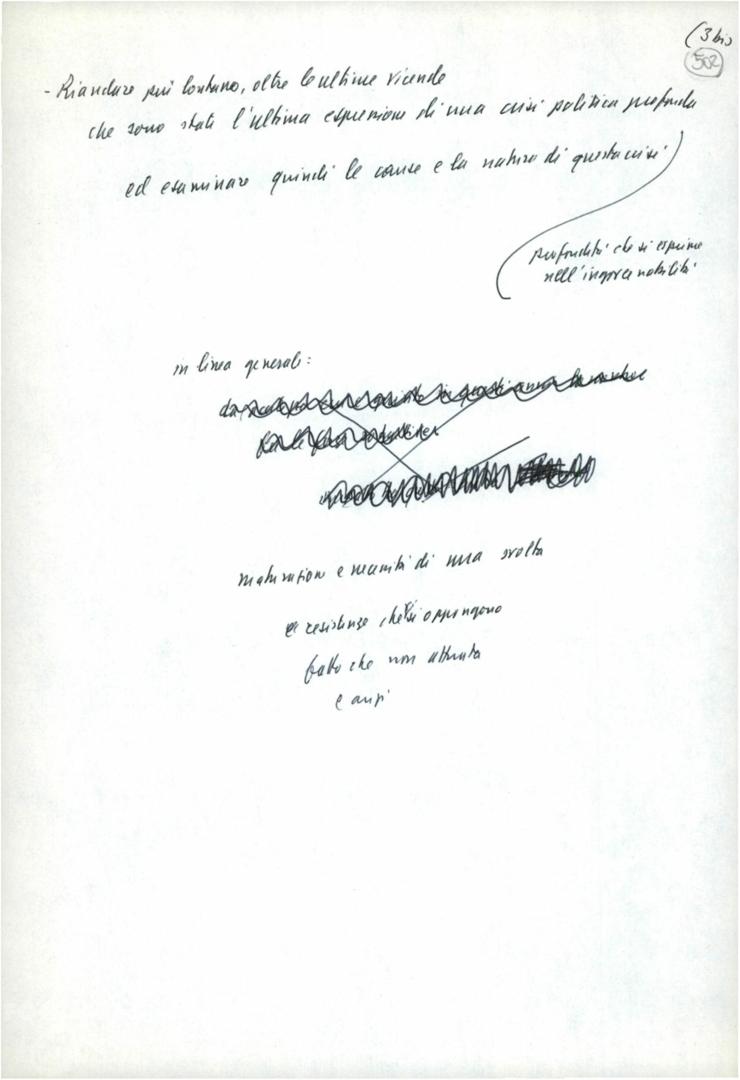 (3 bis
502
- Riandare più lontano, oltre le ultime vicende
che sono stati l'ultima espressione di una crisi politica profonda
ed esaminare quindi le cause e la natura di questa crisi
profondità che si esprime
nell'ingovernabilità
in linea generale:
maturazione e necessità di una svolta
e resistenze che si oppongono
fatto che non attuata
e anzi